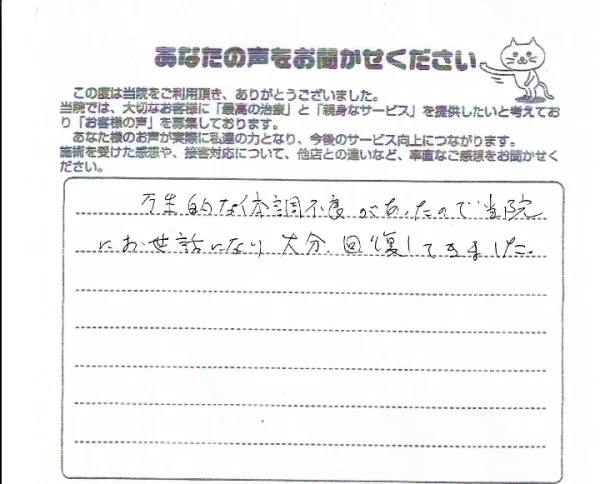 あなたの声をお聞かせください
この度は当院をご利用頂き、ありがとうございました。
当院では、大切なお客様に「最高の治療」と「親身なサービス」を提供したいと考えてお
り「お客様の声」を募集しております。
あなた様のお声が実際に私達の力となり、今後のサービス向上につながります。
施術を受けた感想や、接客対応について、他店との違いなど、率直なご感想をお聞かせく
ださい。
的な体調不良があったので当院
にお世話になり大分回復してきました。